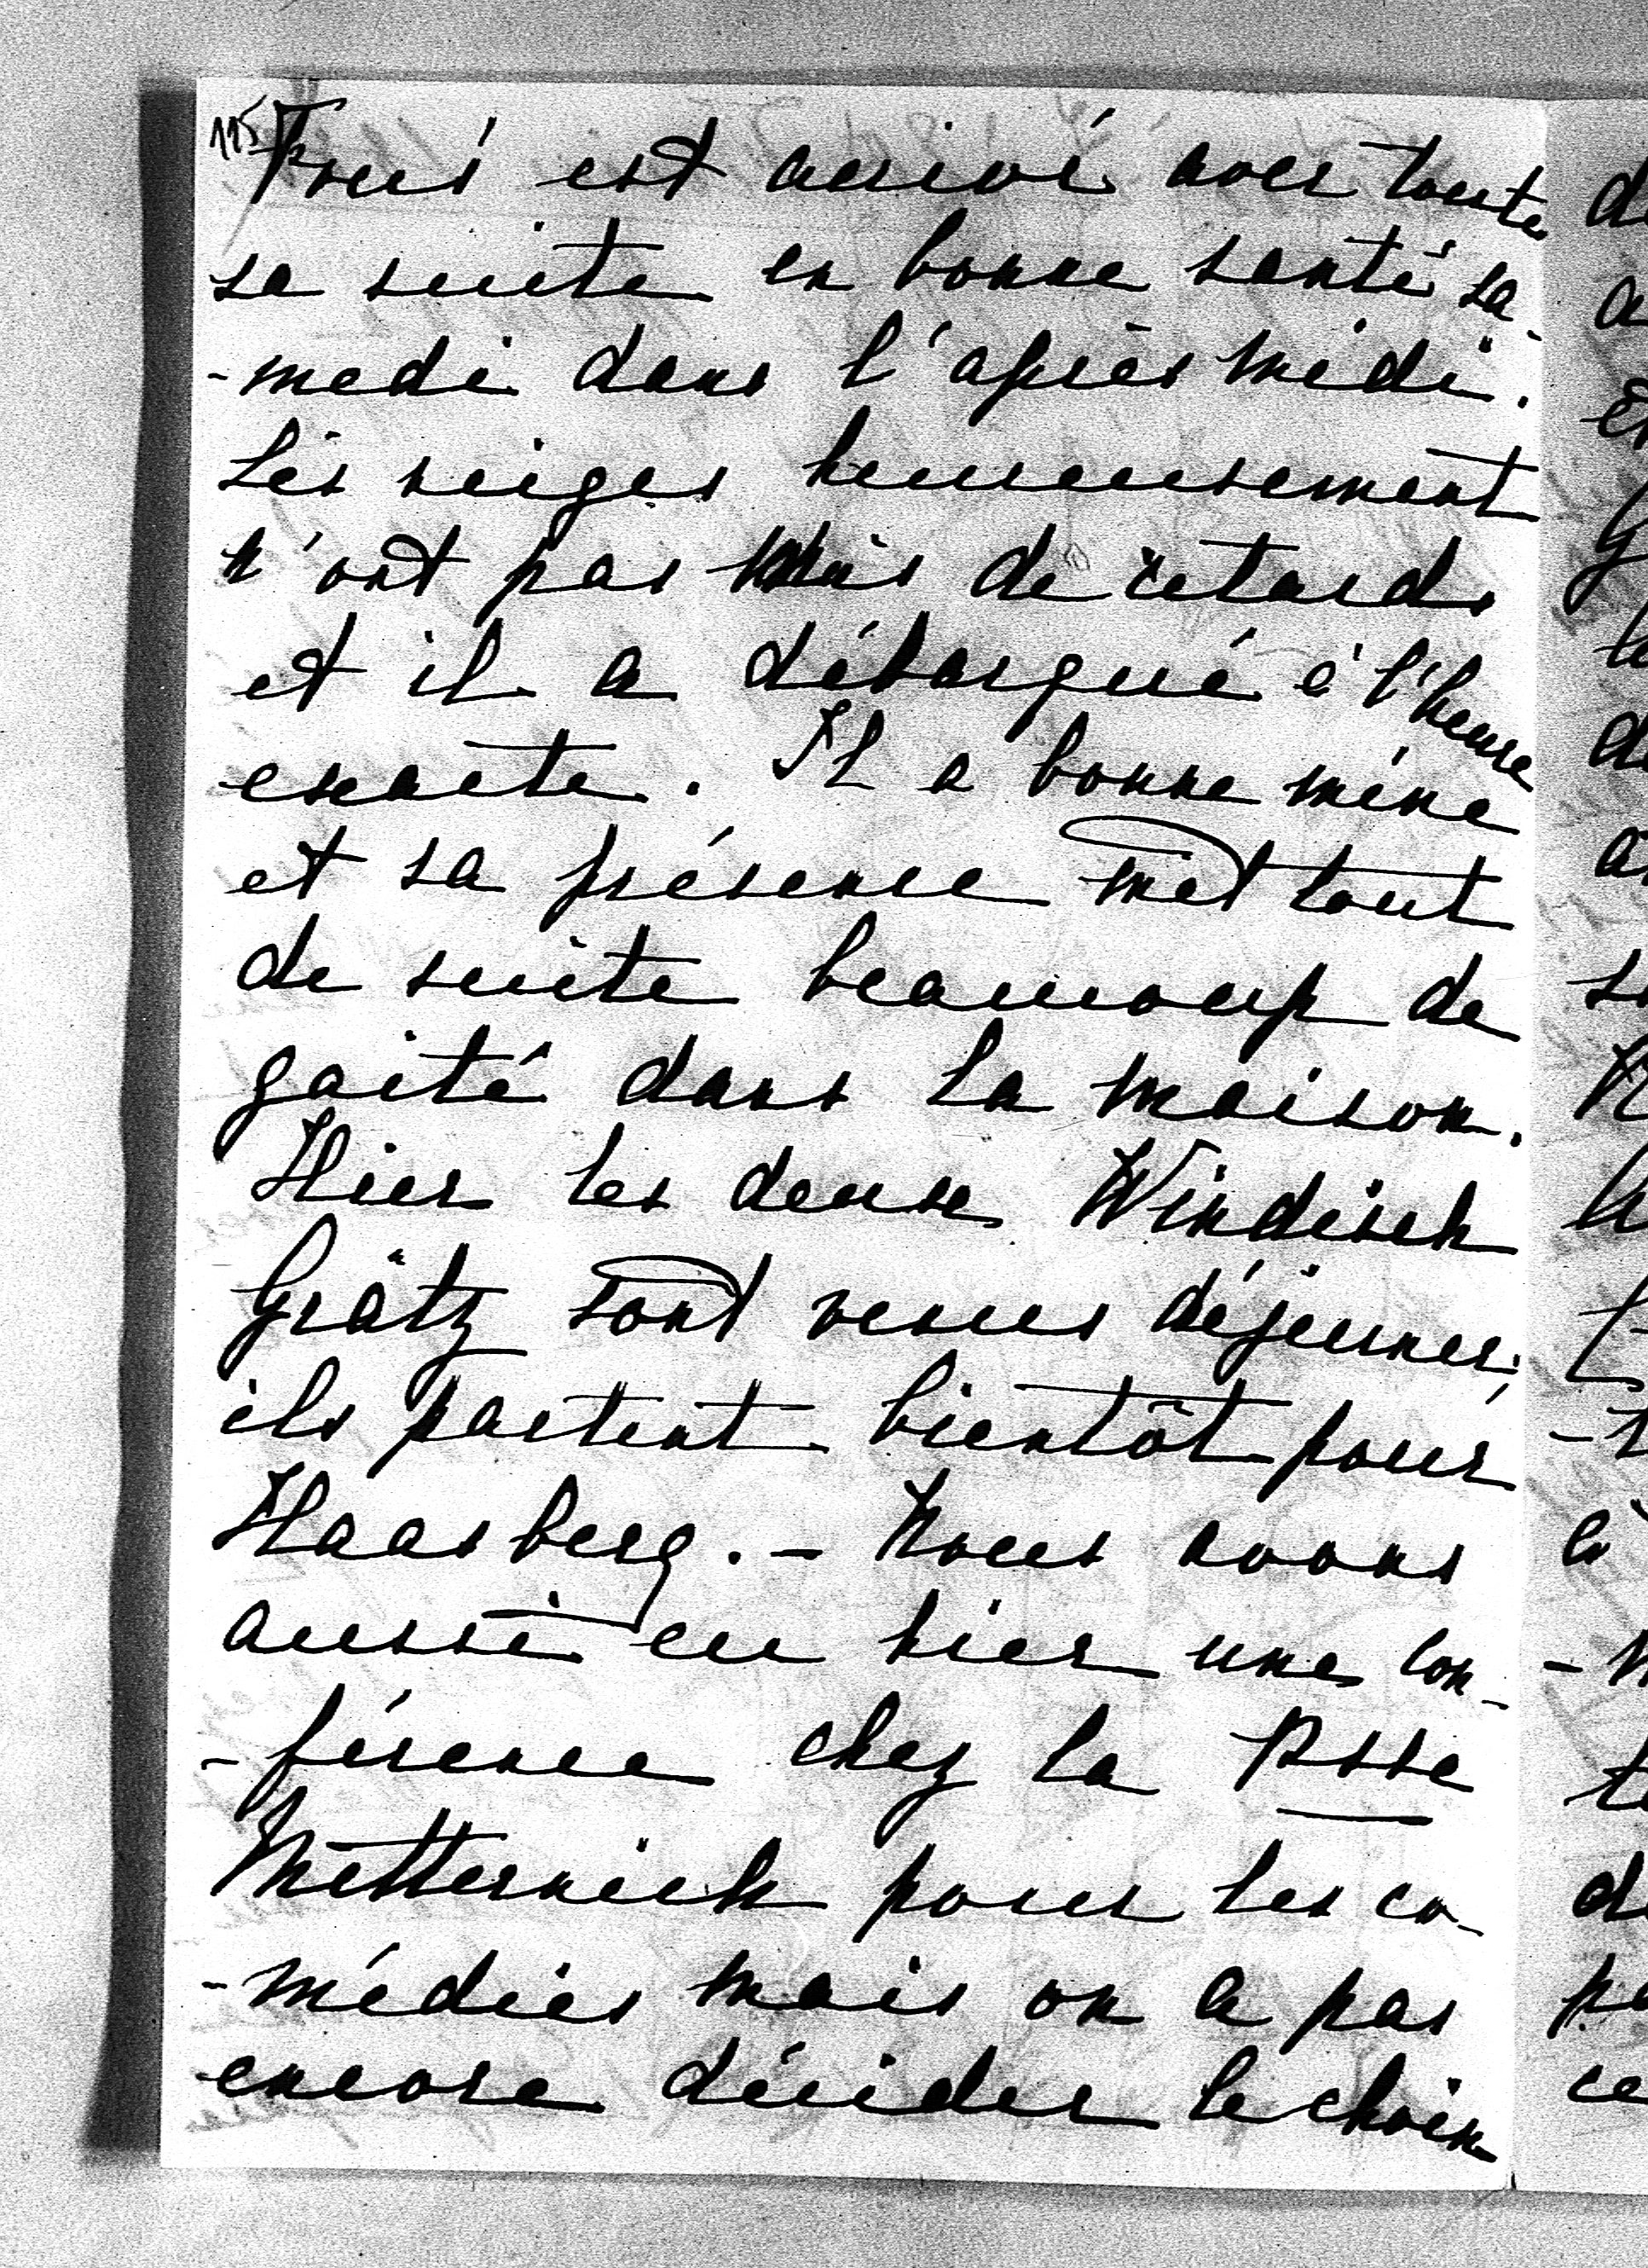 115
est arrivé avec toute
sa suite en bonne santé sa-
-medi dans l'après midi.
Les neiges heureusement
n'ont pas mis de retards
et il a débarqué à l'heure
exacte. Il a bonne mine
et sa présence met tout
de suite beaucoup de
gaité dans la maison.
Hier les deux Windisch
Grätz sont venus déjeuner
ils partent bientôt pour
Haasberg. - Nous avons
aussi eu hier une con-
-férence chez la Psse
Metternich pour les co-
-médies mais on a pas
encore décider le choix